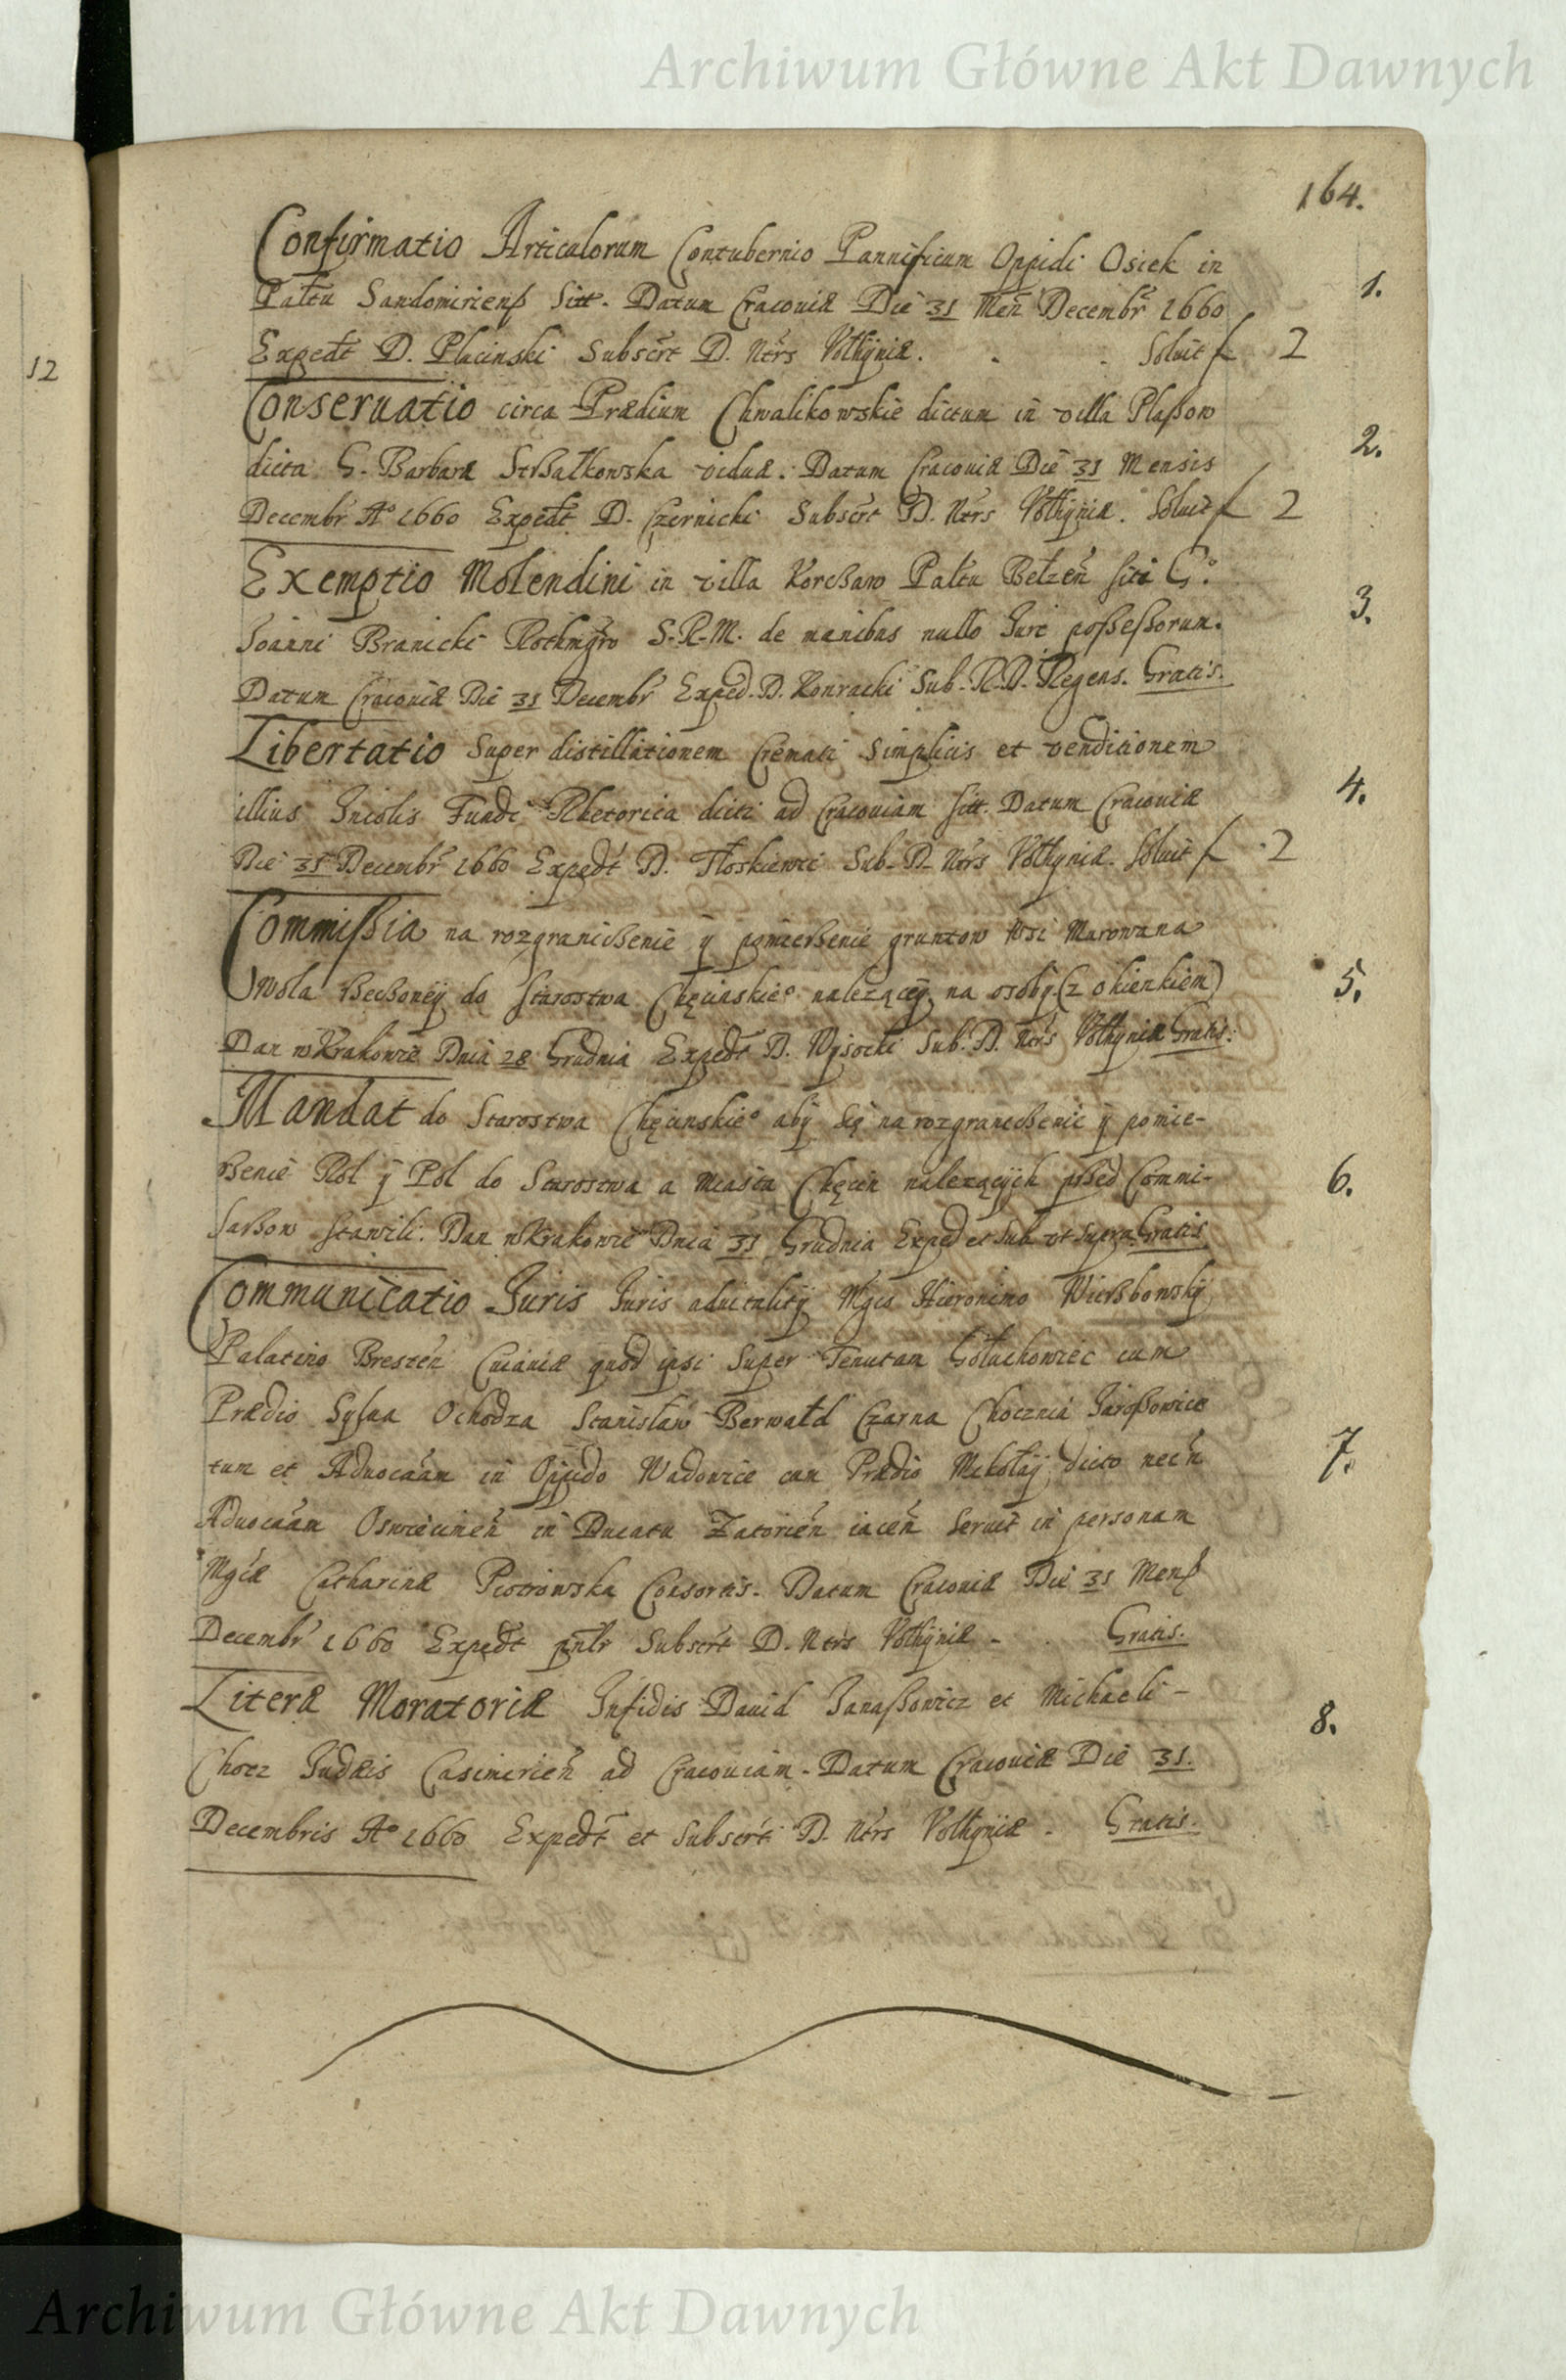 Archiwum Główne Akt Dawnych
164.
12
Confirmatio Articulorum Contubernio Pannificum Oppidi Osiek in
Paltu Sandomiriens sitt. Datum Cracoviæ Die 31 Men Decembr 1660
1.
Expedt D. Placinski Subscrt D. Ntrs Volhÿniæ. Soluit f 2
Conseruatio circa Prædium Chwalikowskie dictum in villa Plaßow
dicta G. Barbaræ Strßalkowska viduæ. Datum Cracouiæ Die 31 Mensis
2.
Decembr Aº 1660 Expedt D. Czernicki Subscrt D. Ntrs Volhÿniæ. Soluit f 2
Exemptio Molendini in villa Korcßaw Paltu Belzen siti G.º
3.
Joanni Branicki Rothmgro S.R.M. de manibus nullo Jure poßeßorum.
Datum Cracouiæ Die 31 Decembr Exped. D. Konracki Sub. R.D. Regens. Gratis.
Libertatio Super distillationem Cremati Simplicis et venditionem
4.
illius Incolis Fundi Rhetorica dicti ad Cracouiam sitt. Datum Cracouiæ
Die 31 Decembr 1660 Expedt D. Tłoskiewci Sub. D. Ntrs Volhyniæ. Soluit f 2
Commißia na rozgranicßenie ÿ pomierßenie gruntow Wsi Marowana
Wola rßecßoneÿ do starostwa Chęcinskieº naleząceÿ, na osobÿ (z okienkiem)
5.
Dan w Krakowie Dnia 28 Grudnia Expedt D. Wÿsocki Sub. D. Ntrs Volhyniæ Gratis.
Mandat do Starostwa Chęcinskieº abÿ się na rozgranicßenie ÿ pomie-
rßenie Rol ÿ Pol do Starostwa a Miasta Chęcin nalezącÿch pßed Commi-
6.
sarßow stawili. Dan w Krakowie Dnia 31 Grudnia Exped et Sub vt supra Gratis
Communicatio Juris Juris aduitalitÿ Mgco Hieronimo Wierßbowskÿ
Palatino Bresten Cuiauiæ quod ipsi Super Tenutam Gołuchowiec cum
Prædio Ochodza Stanisław Berwałd Czarna Chocznia Jaroßowice
tum et Aduocaam in Oppido Wadowice cum Prædio Mikołaÿ dicto necn
7.
Aduocaam Oswiecimen in Ducatu Zatorien iacen seruit in personam
Mgcæ Catharinæ Piotrowska Consortis. Datum Cracouiæ Die 31 Mens
Decembr 1660 Expedt pntr Subscrt D. Ntrs Volhÿniæ. Gratis.
Literæ Moratoriæ Infidis Dauid Janaßowicz et Michaeli-
8.
Chocz Judæis Casimirien ad Cracouiam. Datum Cracouiæ Die 31.
Decembris Aº 1660 Expedt et Subscrt D. Ntrs Volhÿniæ. Gratis.
Archiwum Główne Akt Dawnych